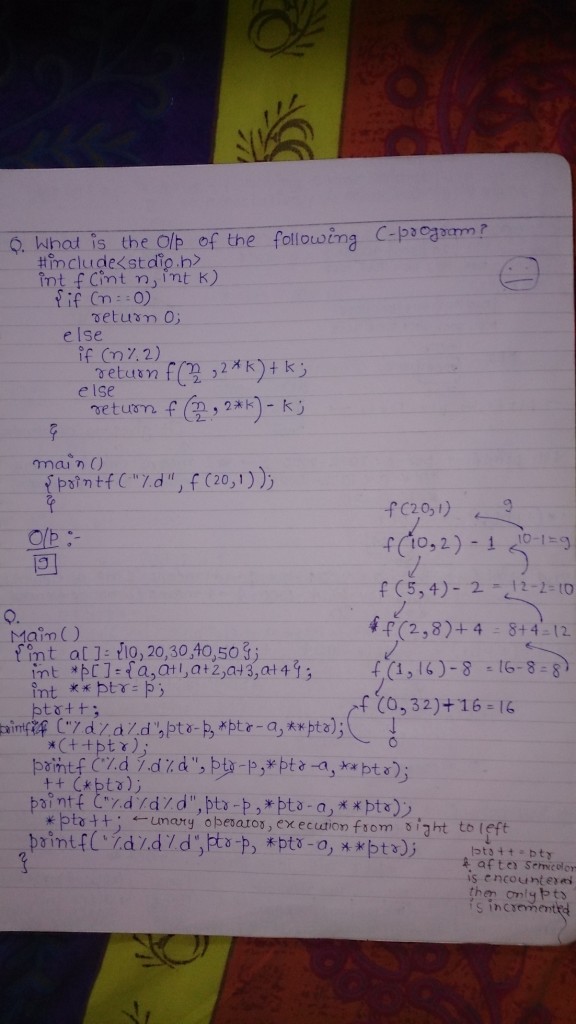 Q. What is the O/p of the following C-program?
#include<stdio.h>
int f (int n, int k)
{ if (n==0)
return 0;
else
if (n%2)
return f(n/2, 2*k)+k;
else
return f(n/2, 2*k)-k;
}
main()
{ printf("%d", f(20,1));
}
O/p :-
9
f(20,1) 9
f(10,2) - 1 10-1=9
f(5,4) - 2 = 12-2=10
f(2,8)+4 = 8+4=12
f(1,16)-8 = 16-8=8
f(0,32)+16=16
0
Q.
Main()
{ int a[]={10,20,30,40,50};
int *p[]={a,a+1,a+2,a+3,a+4};
int **ptr=p;
ptr++;
printf("%d%d%d",ptr-p,*ptr-a,**ptr);
*(++ptr);
printf("%d%d%d",ptr-p,*ptr-a,**ptr);
++(*ptr);
printf("%d%d%d",ptr-p,*ptr-a,**ptr);
*ptr++; ← unary operator, execution from right to left
printf("%d%d%d",ptr-p, *ptr-a, **ptr);
}
ptr++=ptr
& after semicolon
is encountered
then only ptr
is incremented